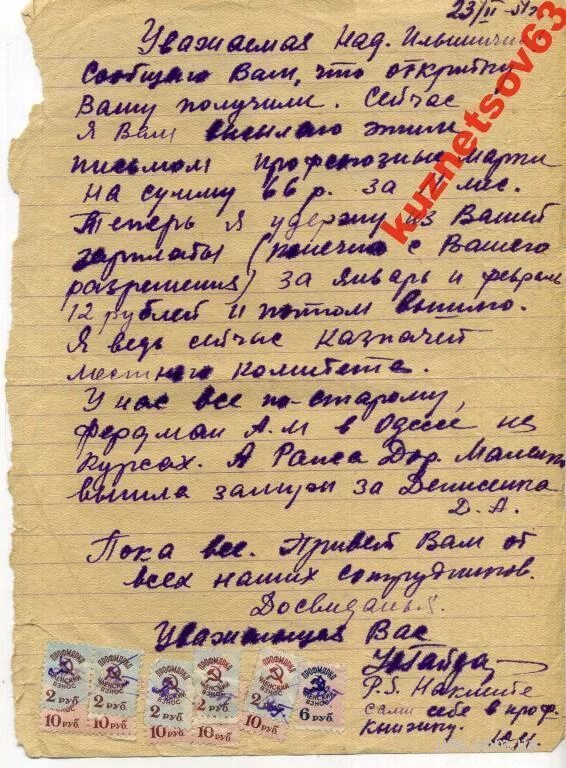 23/II-51г
Уважаемая Над. Ильинична
Сообщаю Вам, что открытку
Вашу получили. Сейчас
Я Вам высылаю этим
письмом профсоюзные марки
на сумму 66 р. за мес.
Теперь я удержу из Вашей
зарплаты (конечно с Вашего
разрешения) за январь и февраль
12 рублей и потом вышлю.
Я ведь сейчас казначей
местного комитета.
У нас все по-старому,
Фердман А.М в Одессе на
курсах. А Раиса Дор.
вышла замуж за Денисенка
Д. А.
Пока все. Привет Вам от
всех наших сотрудников.
Досвиданья.
Уважающая Вас
P.S. Наклейте
сами себе в проф.
книжку.
kuznetsov63
ПРОФМАРКА ЧЛЕНСКИЙ ВЗНОС 2 РУБ 10 РУБ
ПРОФМАРКА ЧЛЕНСКИЙ ВЗНОС 2 РУБ 10 РУБ
ПРОФМАРКА ЧЛЕНСКИЙ ВЗНОС 2 РУБ 10 РУБ
ПРОФМАРКА ЧЛЕНСКИЙ ВЗНОС 2 РУБ 10 РУБ
ПРОФМАРКА ЧЛЕНСКИЙ ВЗНОС 2 10 РУБ
ПРОФМАРКА ЧЛЕНСКИЙ ВЗНОС 6 РУБ